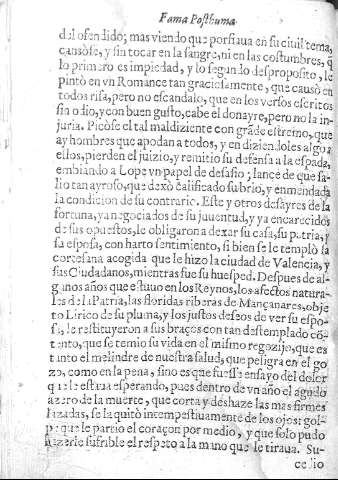 Fama Posthuma
del ofendido; mas viendo que porfiaua en su ciuil tema,
cansòse, y sin tocar en la sangre, ni en las costumbres, q̃
lo primero es impiedad, y lo segundo desproposito, le
pintò en vn Romance tan graciosamente, que causò en
todos risa, pero no escandalo, que en los versos escritos
sin odio, y con buen gusto, cabe el donayre, pero no la in-
juria. Picòse el tal maldiziente con grãde estremo, que
ay hombres que apodan a todos, y en diziendoles algo a
ellos, pierden el juizio, y remitio su defensa a la espada,
embiando a Lope vn papel de desafio; lance de que sa-
lio tan ayroso, que dexò calificado su brio, y enmendada
la condicion de su contrario. Este y otros desayres de la
fortuna, ya negociados de su juuentud, y ya encarecidos
de sus opuestos, le obligaron a dexar su casa, su patria, y
su esposa, con harto sentimiento, si bien se le templò la
cortesana acogida que le hizo la ciudad de Valencia, y
sus Ciudadanos, mientras fue su huesped. Despues de al-
gunos años que estuuo en los Reynos, los afectos natura-
les de la Patria, las floridas riberas de Mançanares, obje
to Lirico de su pluma, y los justos deseos de ver su espo-
sa, le restituyeron a sus braços con tan destemplado cõ-
tento, que se temio su vida en el mismo regozijo, que es
tanto el melindre de nuestra salud, que peligra en el go
zo, como en la pena, sino es que fuesse ensayo del dolor
que le estaua esperando, pues dentro de vn año el agudo
azero de la muerte, que corta y deshaze las mas firmes
lazadas, se la quitò intempestiuamente de los ojos: gol-
pe que le partio el coraçon por medio, y que solo pudo
hazerle sufrible el respeto a la mano que le tiraua. Su-
cedio